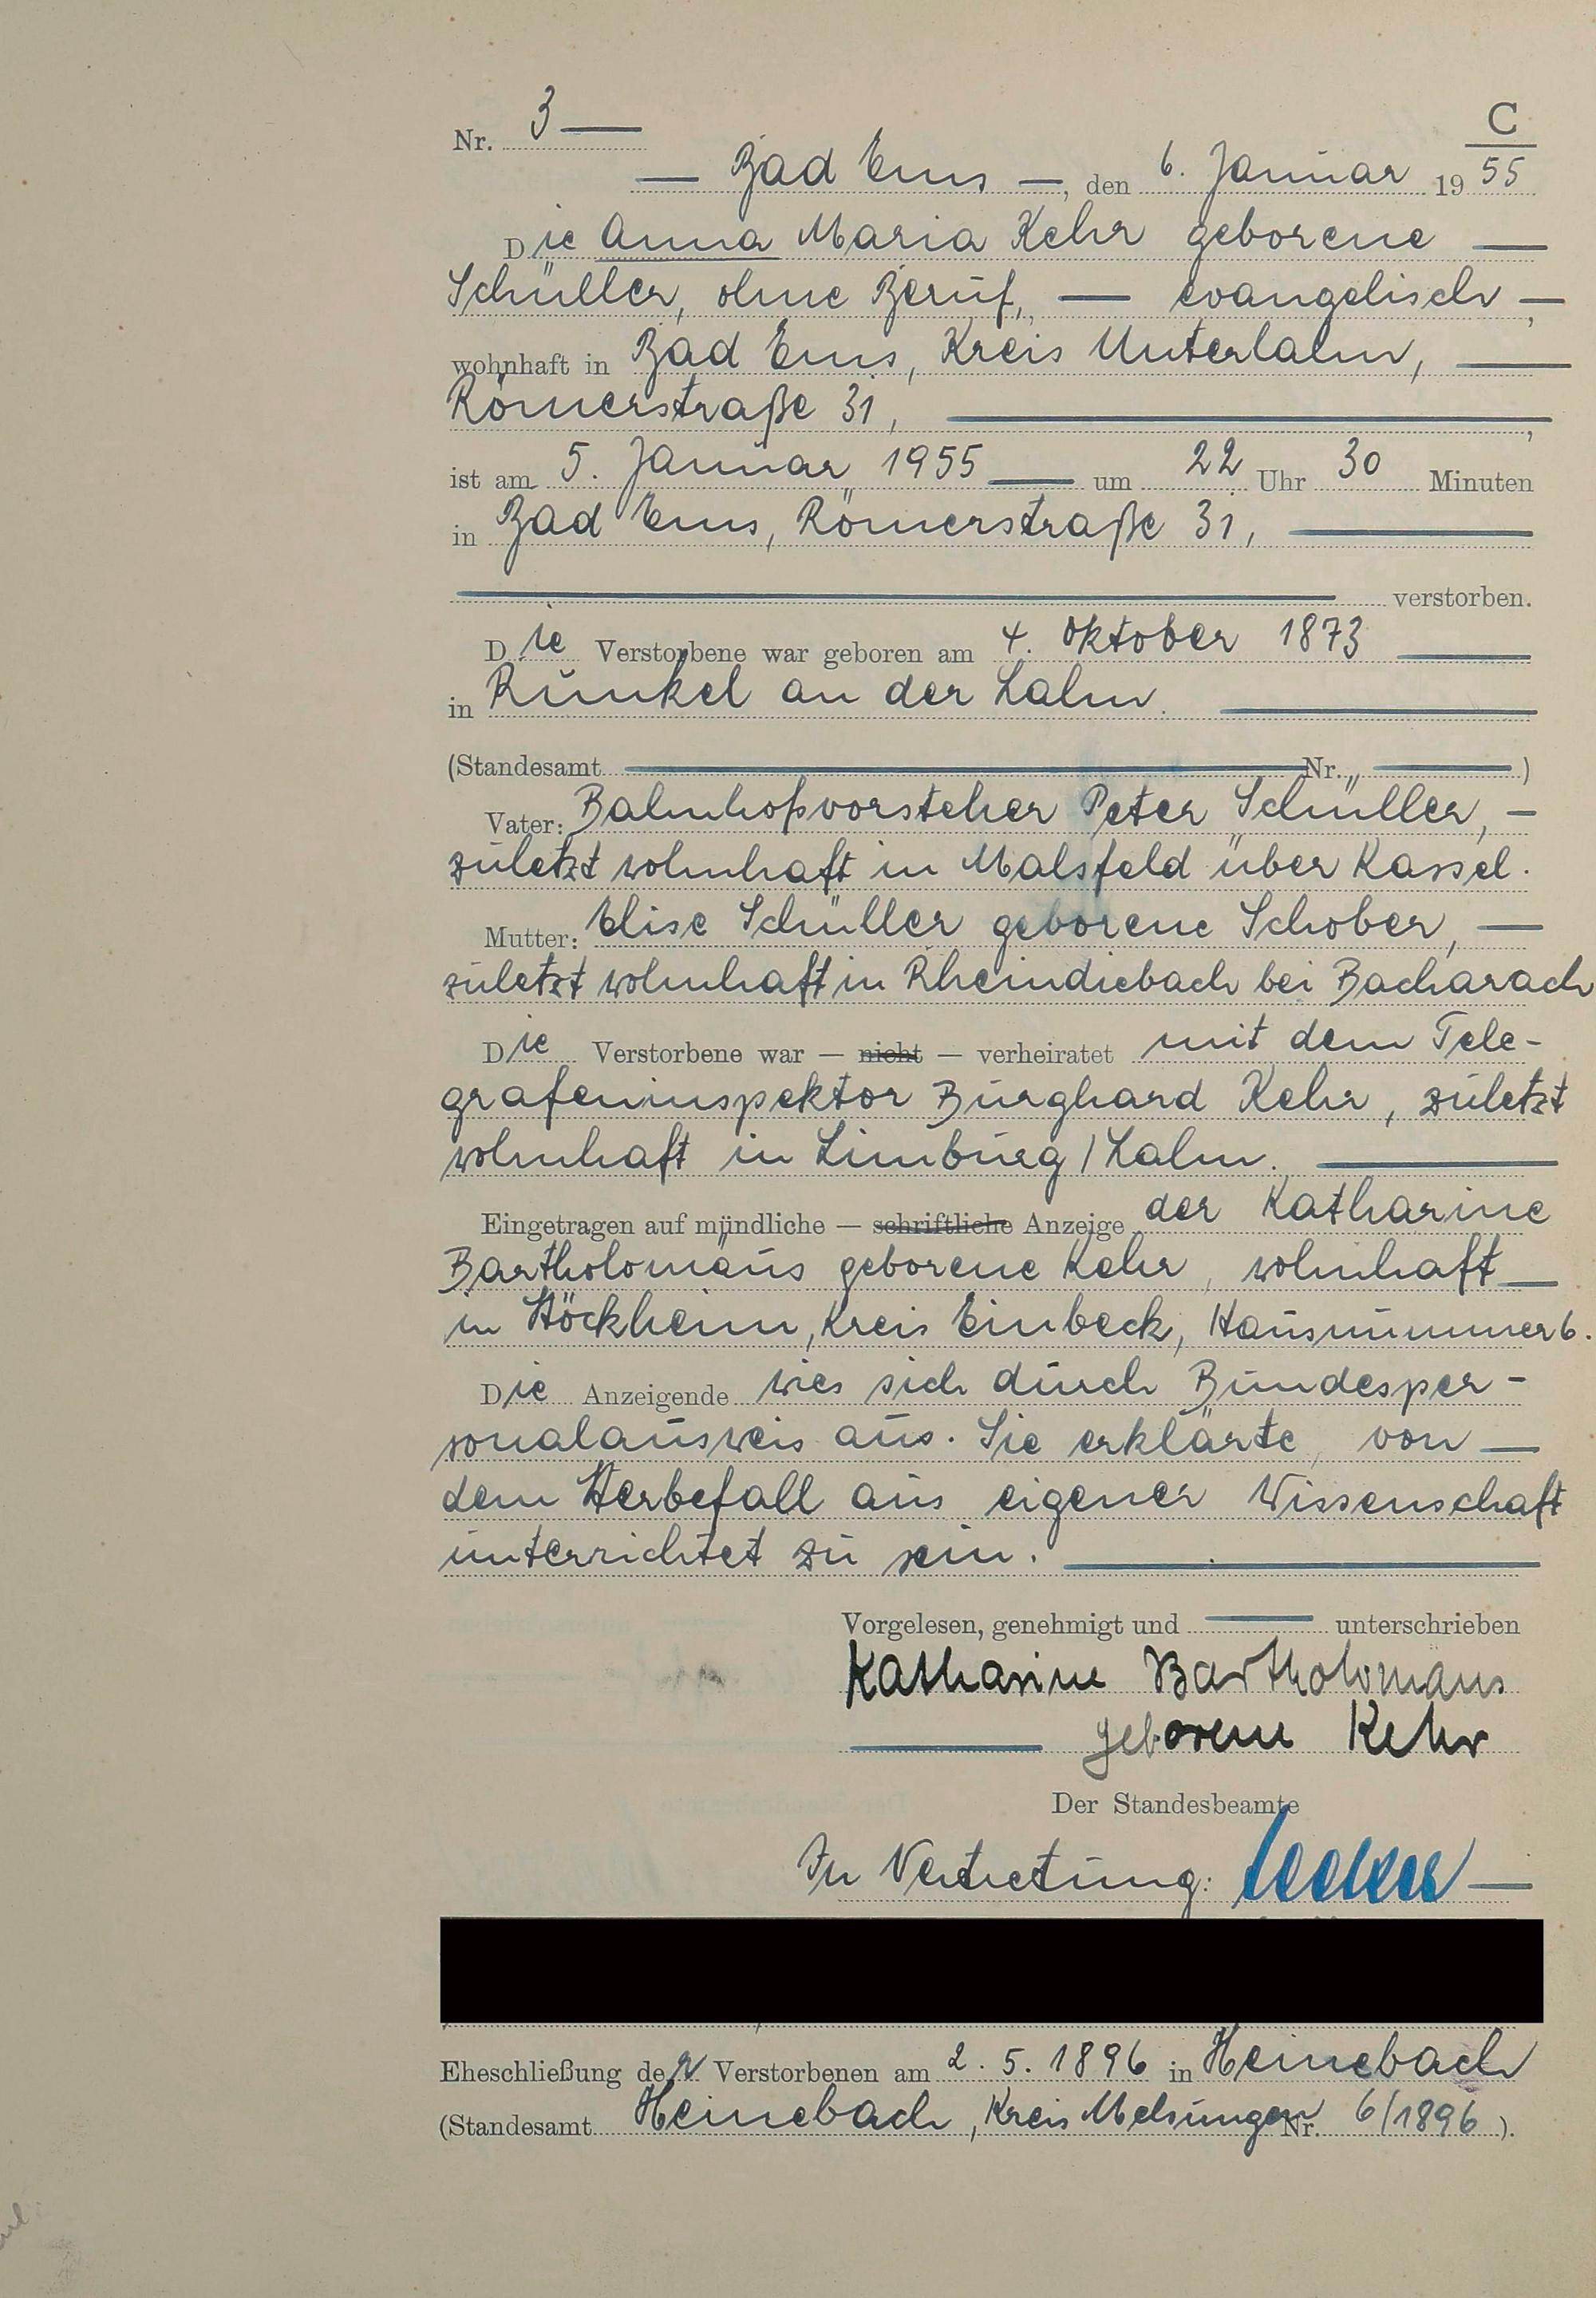 C
Nr. 3 —
— Bad Ems —, den 6. Januar 1955
Die Anna Maria Kehr geborene —
Schüller, ohne Beruf, — evangelisch —,
wohnhaft in Bad Ems, Kreis Unterlahn, —
Römerstraße 31, —,
ist am 5. Januar 1955 — um 22 Uhr 30 Minuten
in Bad Ems, Römerstraße 31, —
— verstorben.
Die Verstorbene war geboren am 4. Oktober 1873 —
in Runkel an der Lahn. —
(Standesamt — Nr. —)
Vater: Bahnhofsvorsteher Peter Schüller, —
zuletzt wohnhaft in Malsfeld über Kassel.
Mutter: Elise Schüller geborene Schober, —
zuletzt wohnhaft in Rheindiebach bei Bacharach
Die Verstorbene war — nicht — verheiratet mit dem Tele-
grafeninspektor Burghard Kehr, zuletzt
wohnhaft in Limburg / Lahn. —
Eingetragen auf mündliche — schriftliche Anzeige der Katharine
Bartholomäus geborene Kehr, wohnhaft —
in Stöckheim, Kreis Einbeck, Hausnummer 6.
Die Anzeigende wies sich durch Bundesper-
sonalausweis aus. Sie erklärte, von —
dem Sterbefall aus eigener Wissenschaft
unterrichtet zu sein. —
Vorgelesen, genehmigt und — unterschrieben
Katharine Bartholomäus
— geborene Kehr
Der Standesbeamte
In Vertretung: —
Eheschließung der Verstorbenen am 2. 5. 1896 in Heinebach
(Standesamt Heinebach, Kreis Melsungen Nr. 6/1896).